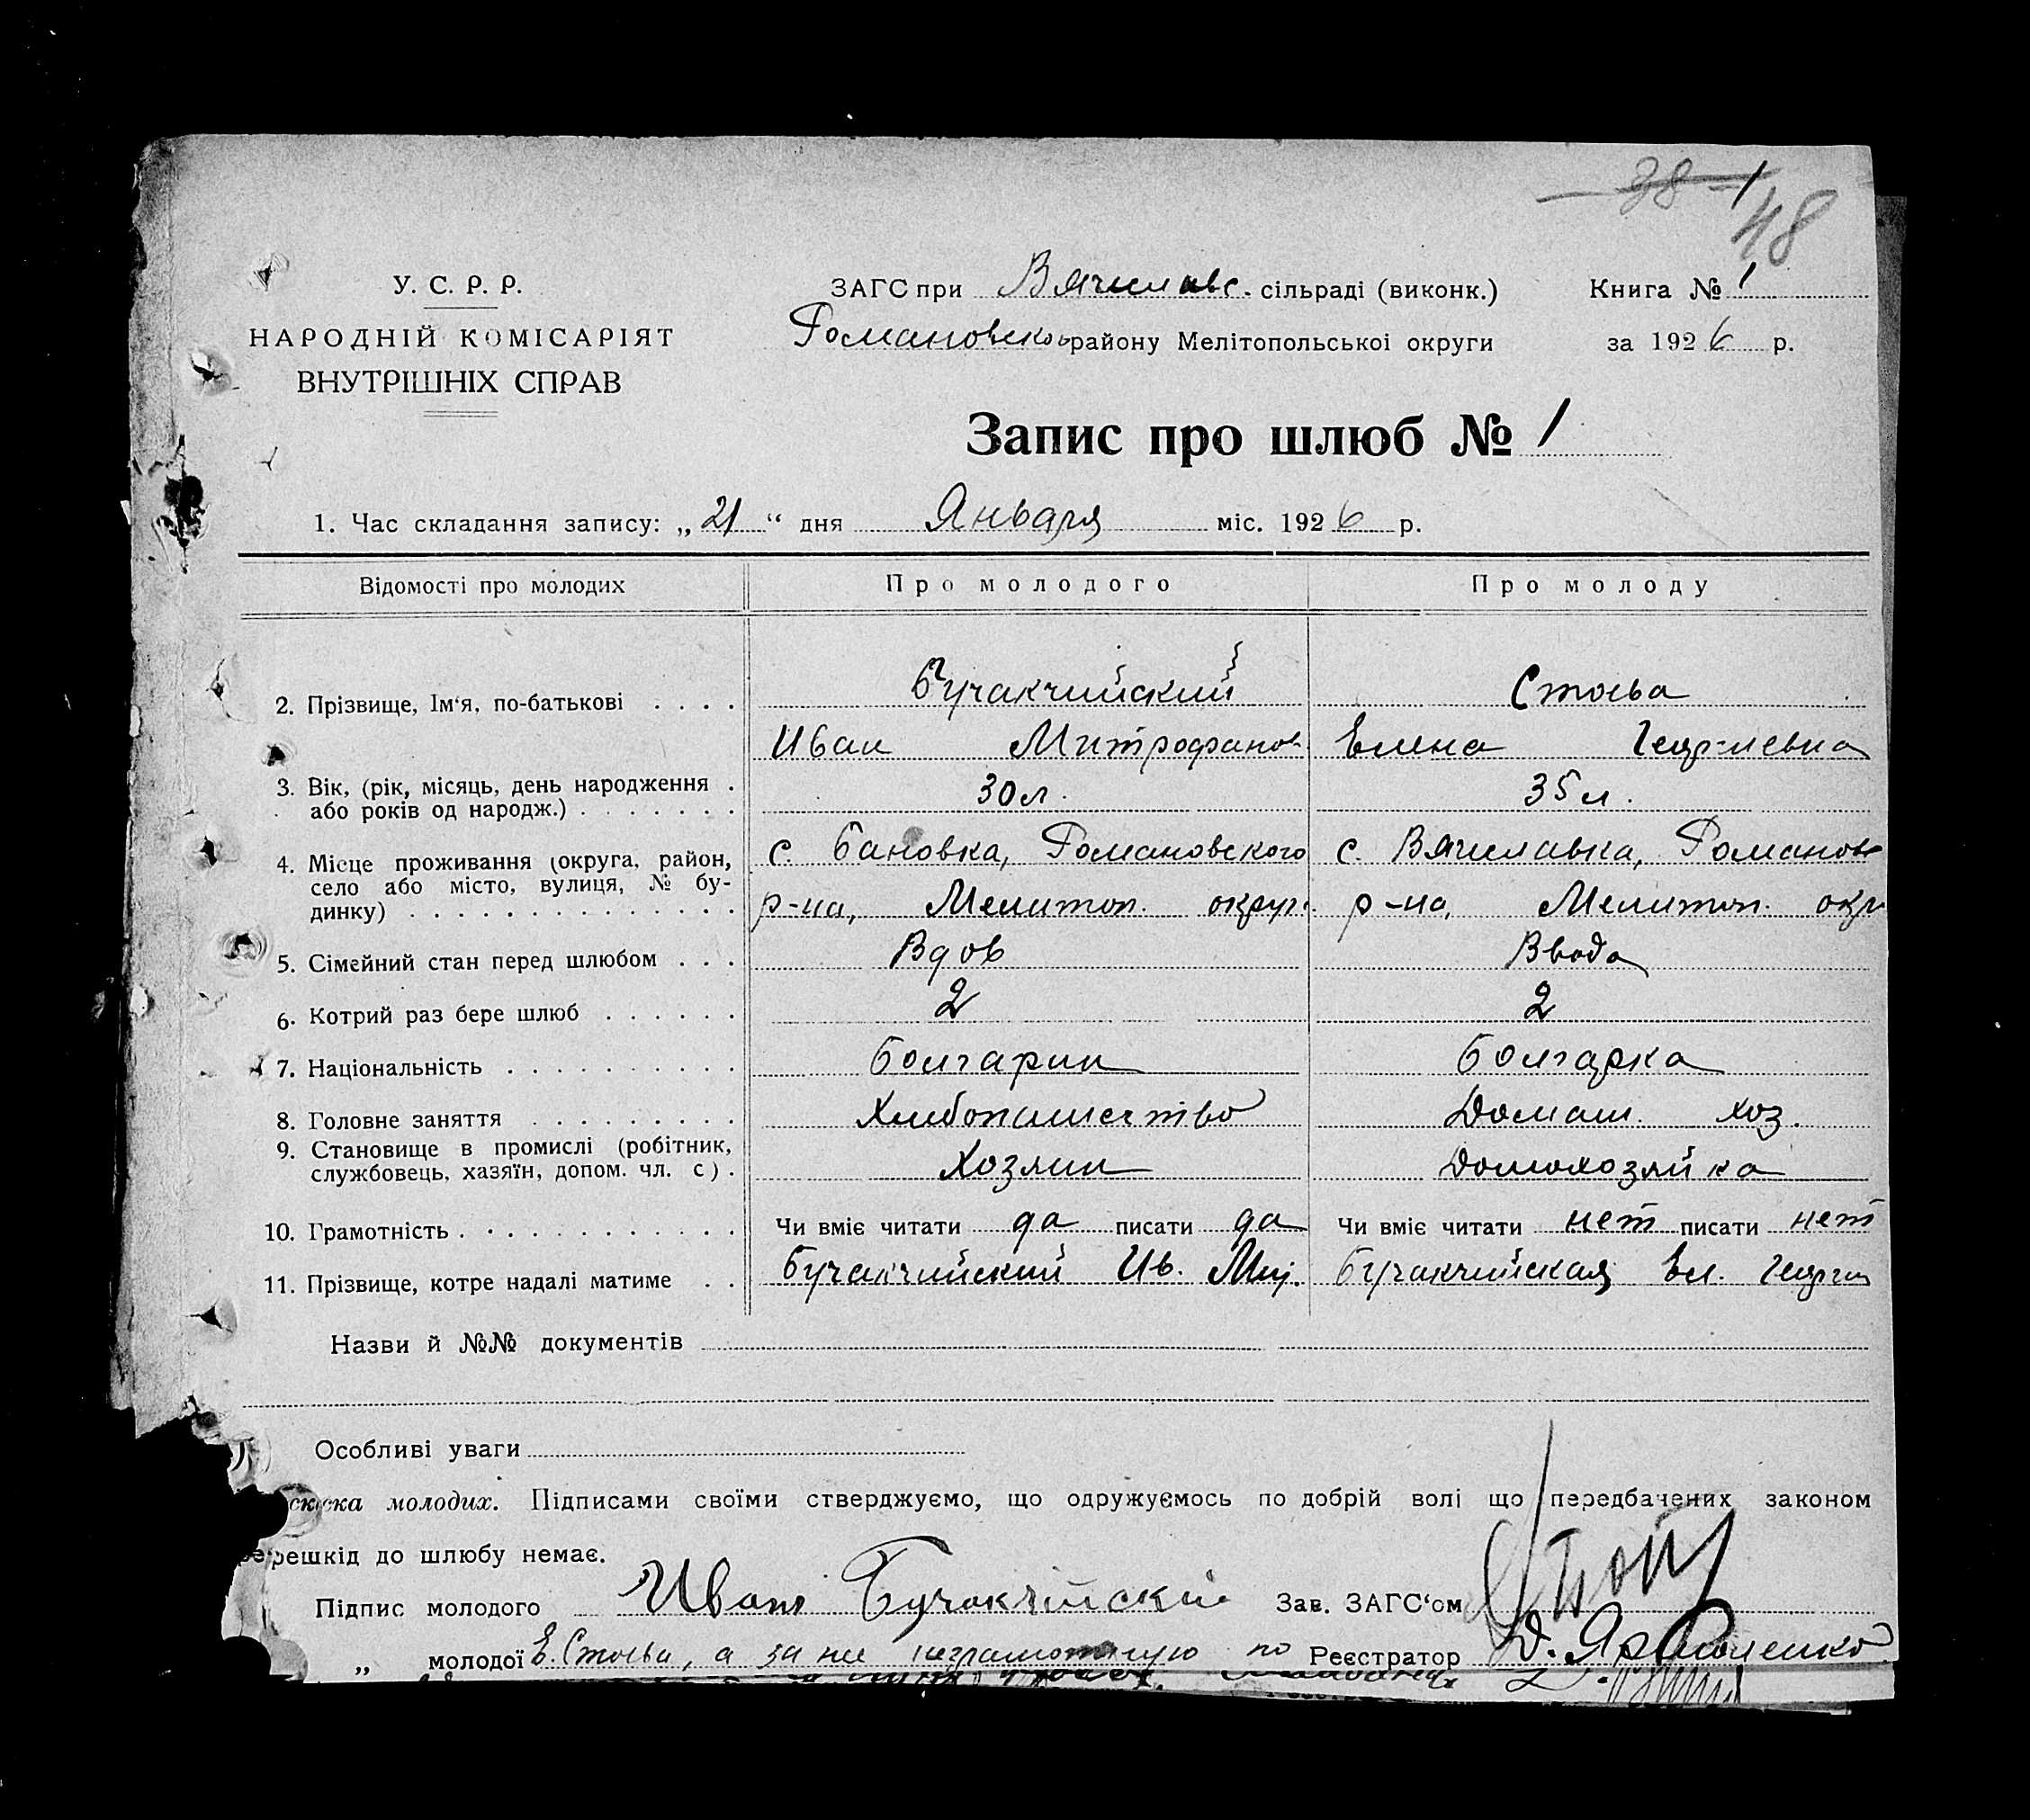 38 1
48
У. С. Р. Р.
НАРОДНІЙ КОМІСАРІЯТ
ВНУТРІШНІХ СПРАВ
ЗАГС при Вячеславс. сільраді (виконк.)
Романовско районy Мелітопольської округи
Книга № 1
за 1926 р.
Запис про шлюб № 1
1. Час складання запису: „21“ дня Января міс. 1926 р.
Відомості про молодих Про молодого Про молоду
2. Прізвище, Ім‘я, по-батькові . . . . Бучакчийский Стоева
Иван Митрофанов Елена Георгиевна
3. Вік, (рік, місяць, день народження .
або років од народж.) . . . . . . . 30 л. 35 л.
4. Місце проживання (округа, район, с. Бановка, Романовского с. Вячеславка, Романовс
село або місто, вулиця, № бу-
динку) . . . . . . . . . . . . . . р-на, Мелитоп. округ. р-на, Мелитоп. окр
5. Сімейний стан перед шлюбом . . . Вдов Вдова
6. Котрий раз бере шлюб . . . . . . 2 2
7. Національність . . . . . . . . . . Болгарин Болгарка
8. Головне заняття . . . . . . . . . Хлебопашество Домаш. хоз.
9. Становище в промислі (робітник,
службовець, хазяїн, допом. чл. с) . Хозяин Домохозяйка
10. Грамотність . . . . . . . . . . . Чи вміє читати да писати да Чи вміє читати нет писати нет
11. Прізвище, котре надалі матиме . . Бучакчийский Ив. Мит. Бучакчийская Ел. Георги
Назви й №№ документів
Особливі уваги
ска молодих. Підписами своїми стверджуємо, що одружуємось по добрій волі що передбачених законом
решкід до шлюбу немає.
Підпис молодого Иван Бучакчійскій Зав. ЗАГС‘ом
„ молодої Е. Стоева, а за нее неграмотную по Реєстратор Д.